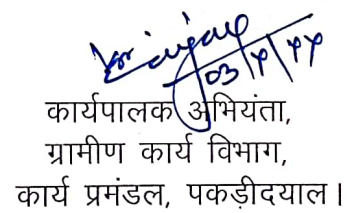 03/४/२५
कार्यपालक अभियंता,
ग्रामीण कार्य विभाग,
कार्य प्रमंडल, पकड़ीदयाल।